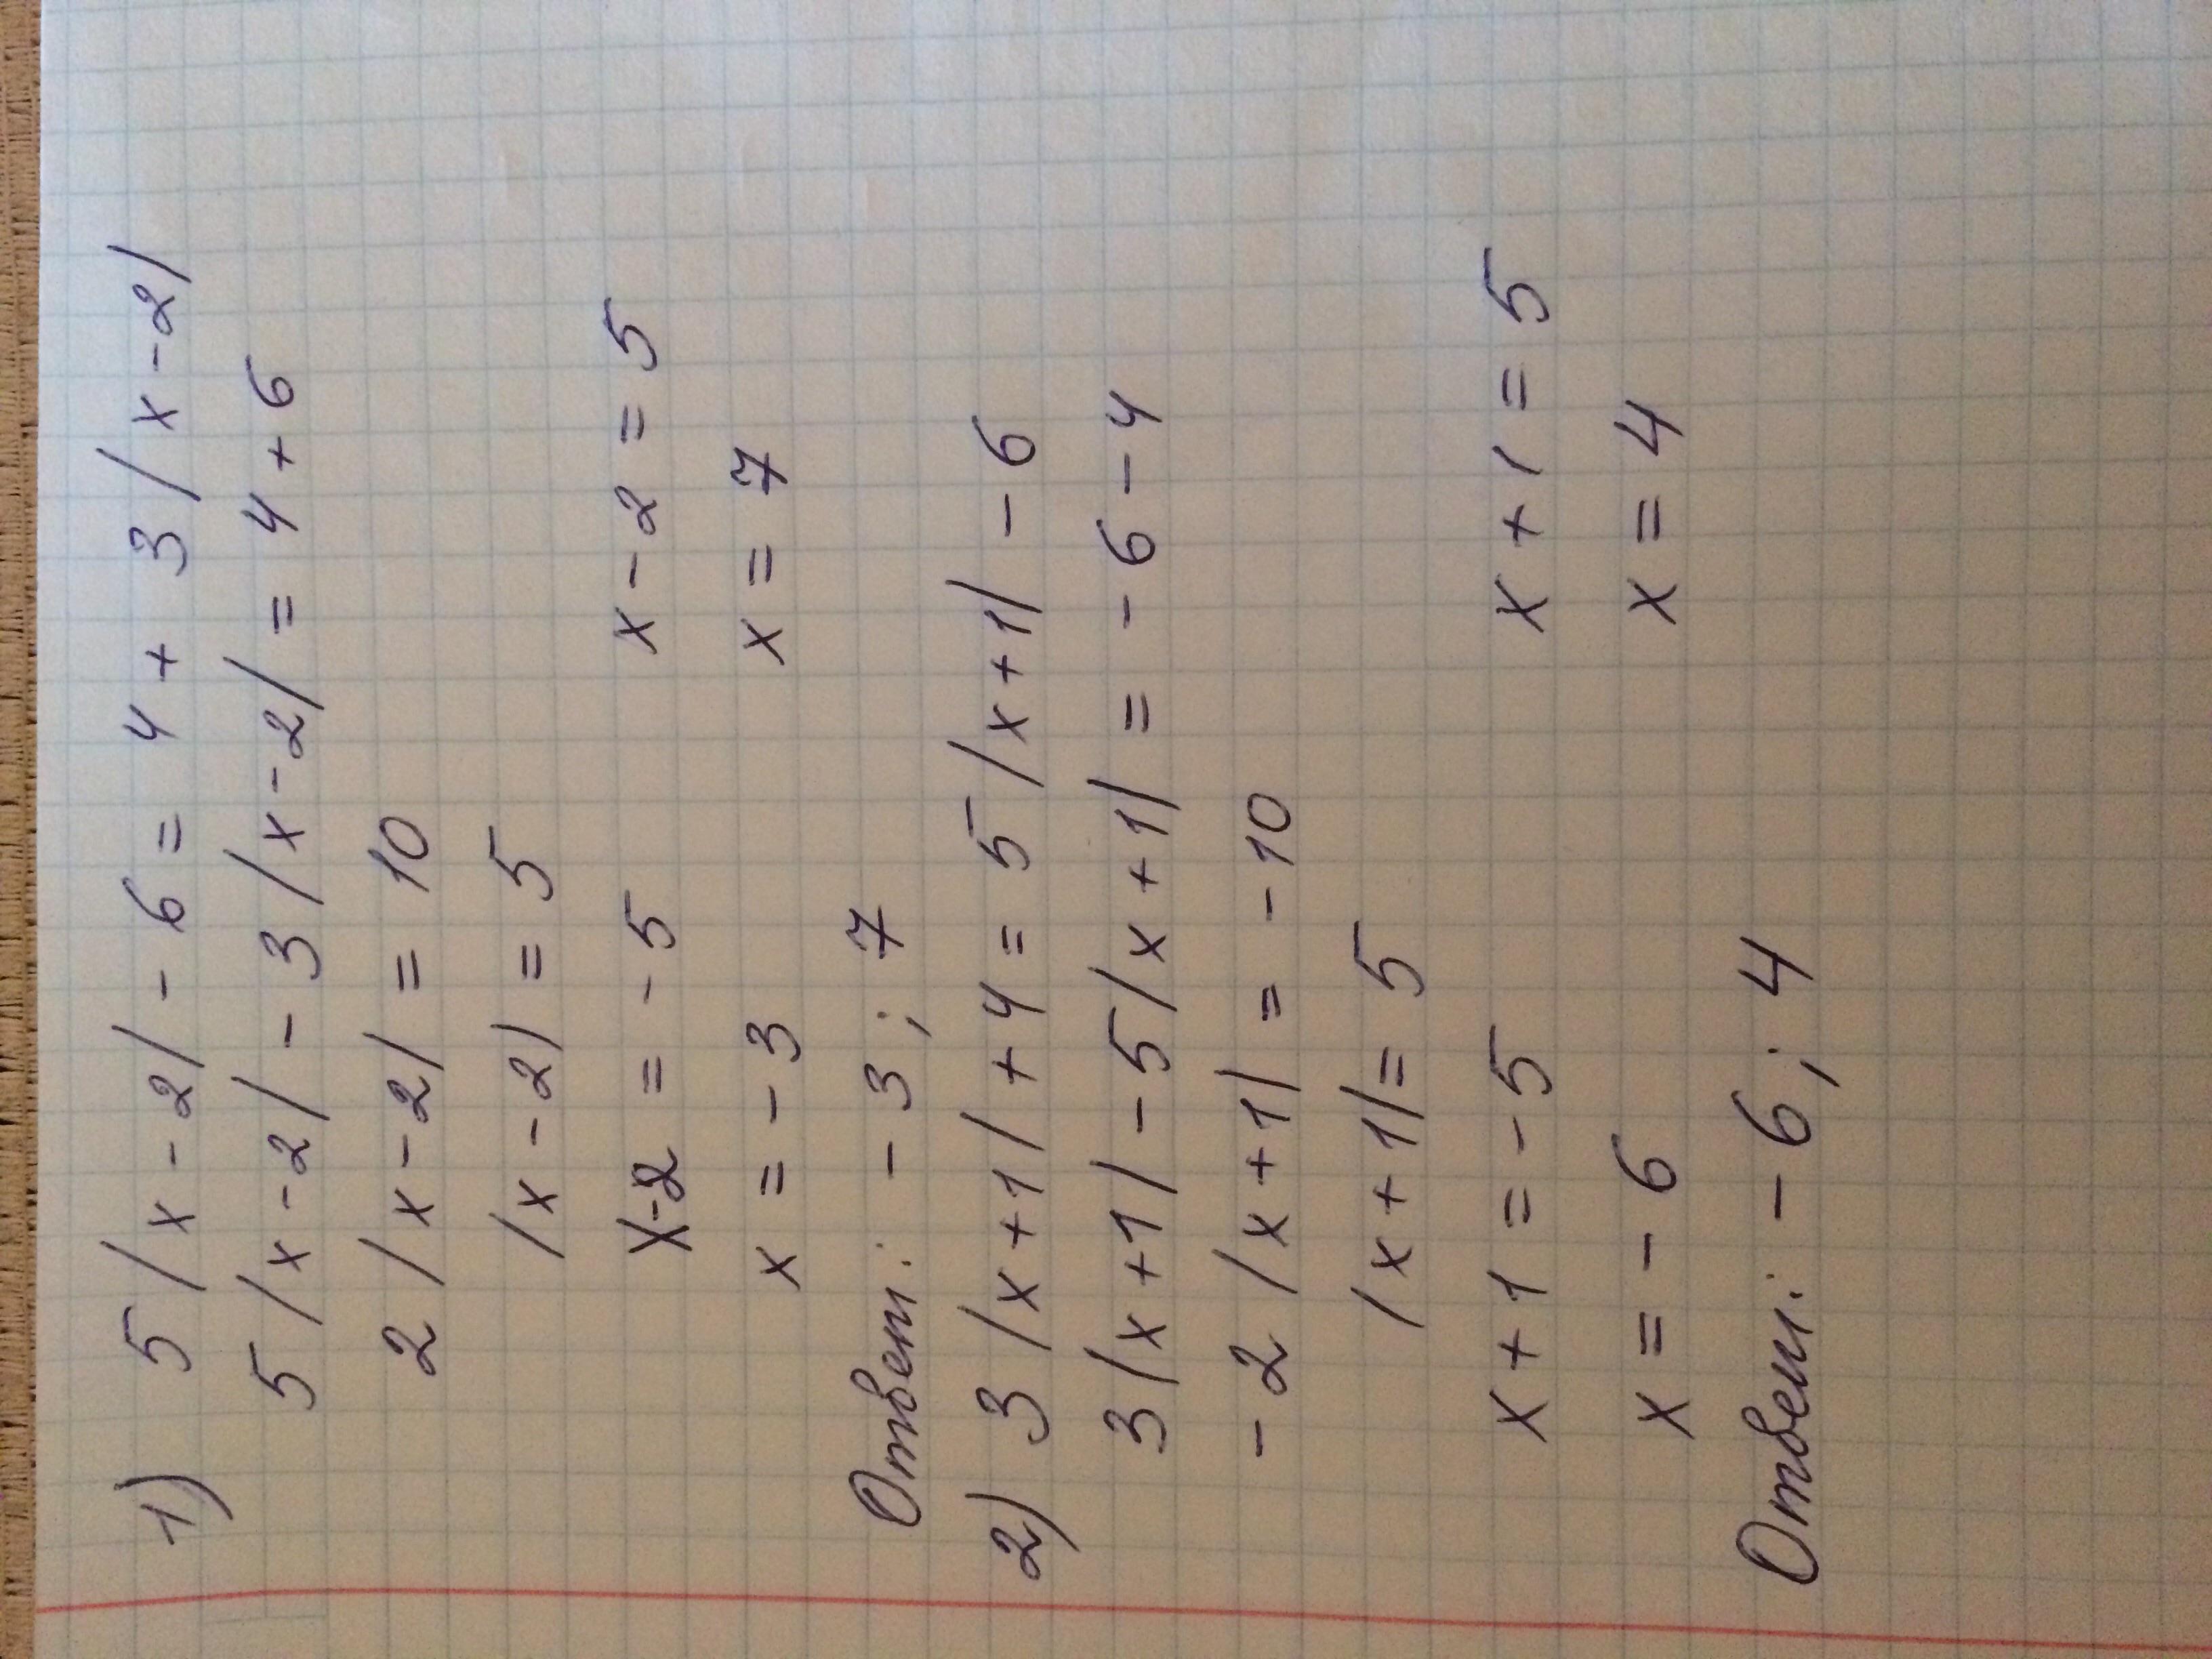 1) 5|x-2|-6=4+3|x-2|
5|x-2|-3|x-2|=4+6
2|x-2|=10
|x-2|=5
x-2=-5 x-2=5
x=-3 x=7
Ответ: -3; 7
2) 3|x+1|+4=5|x+1|-6
3|x+1|-5|x+1|=-6-4
-2|x+1|=-10
|x+1|=5
x+1=-5 x+1=5
x=-6 x=4
Ответ: -6; 4